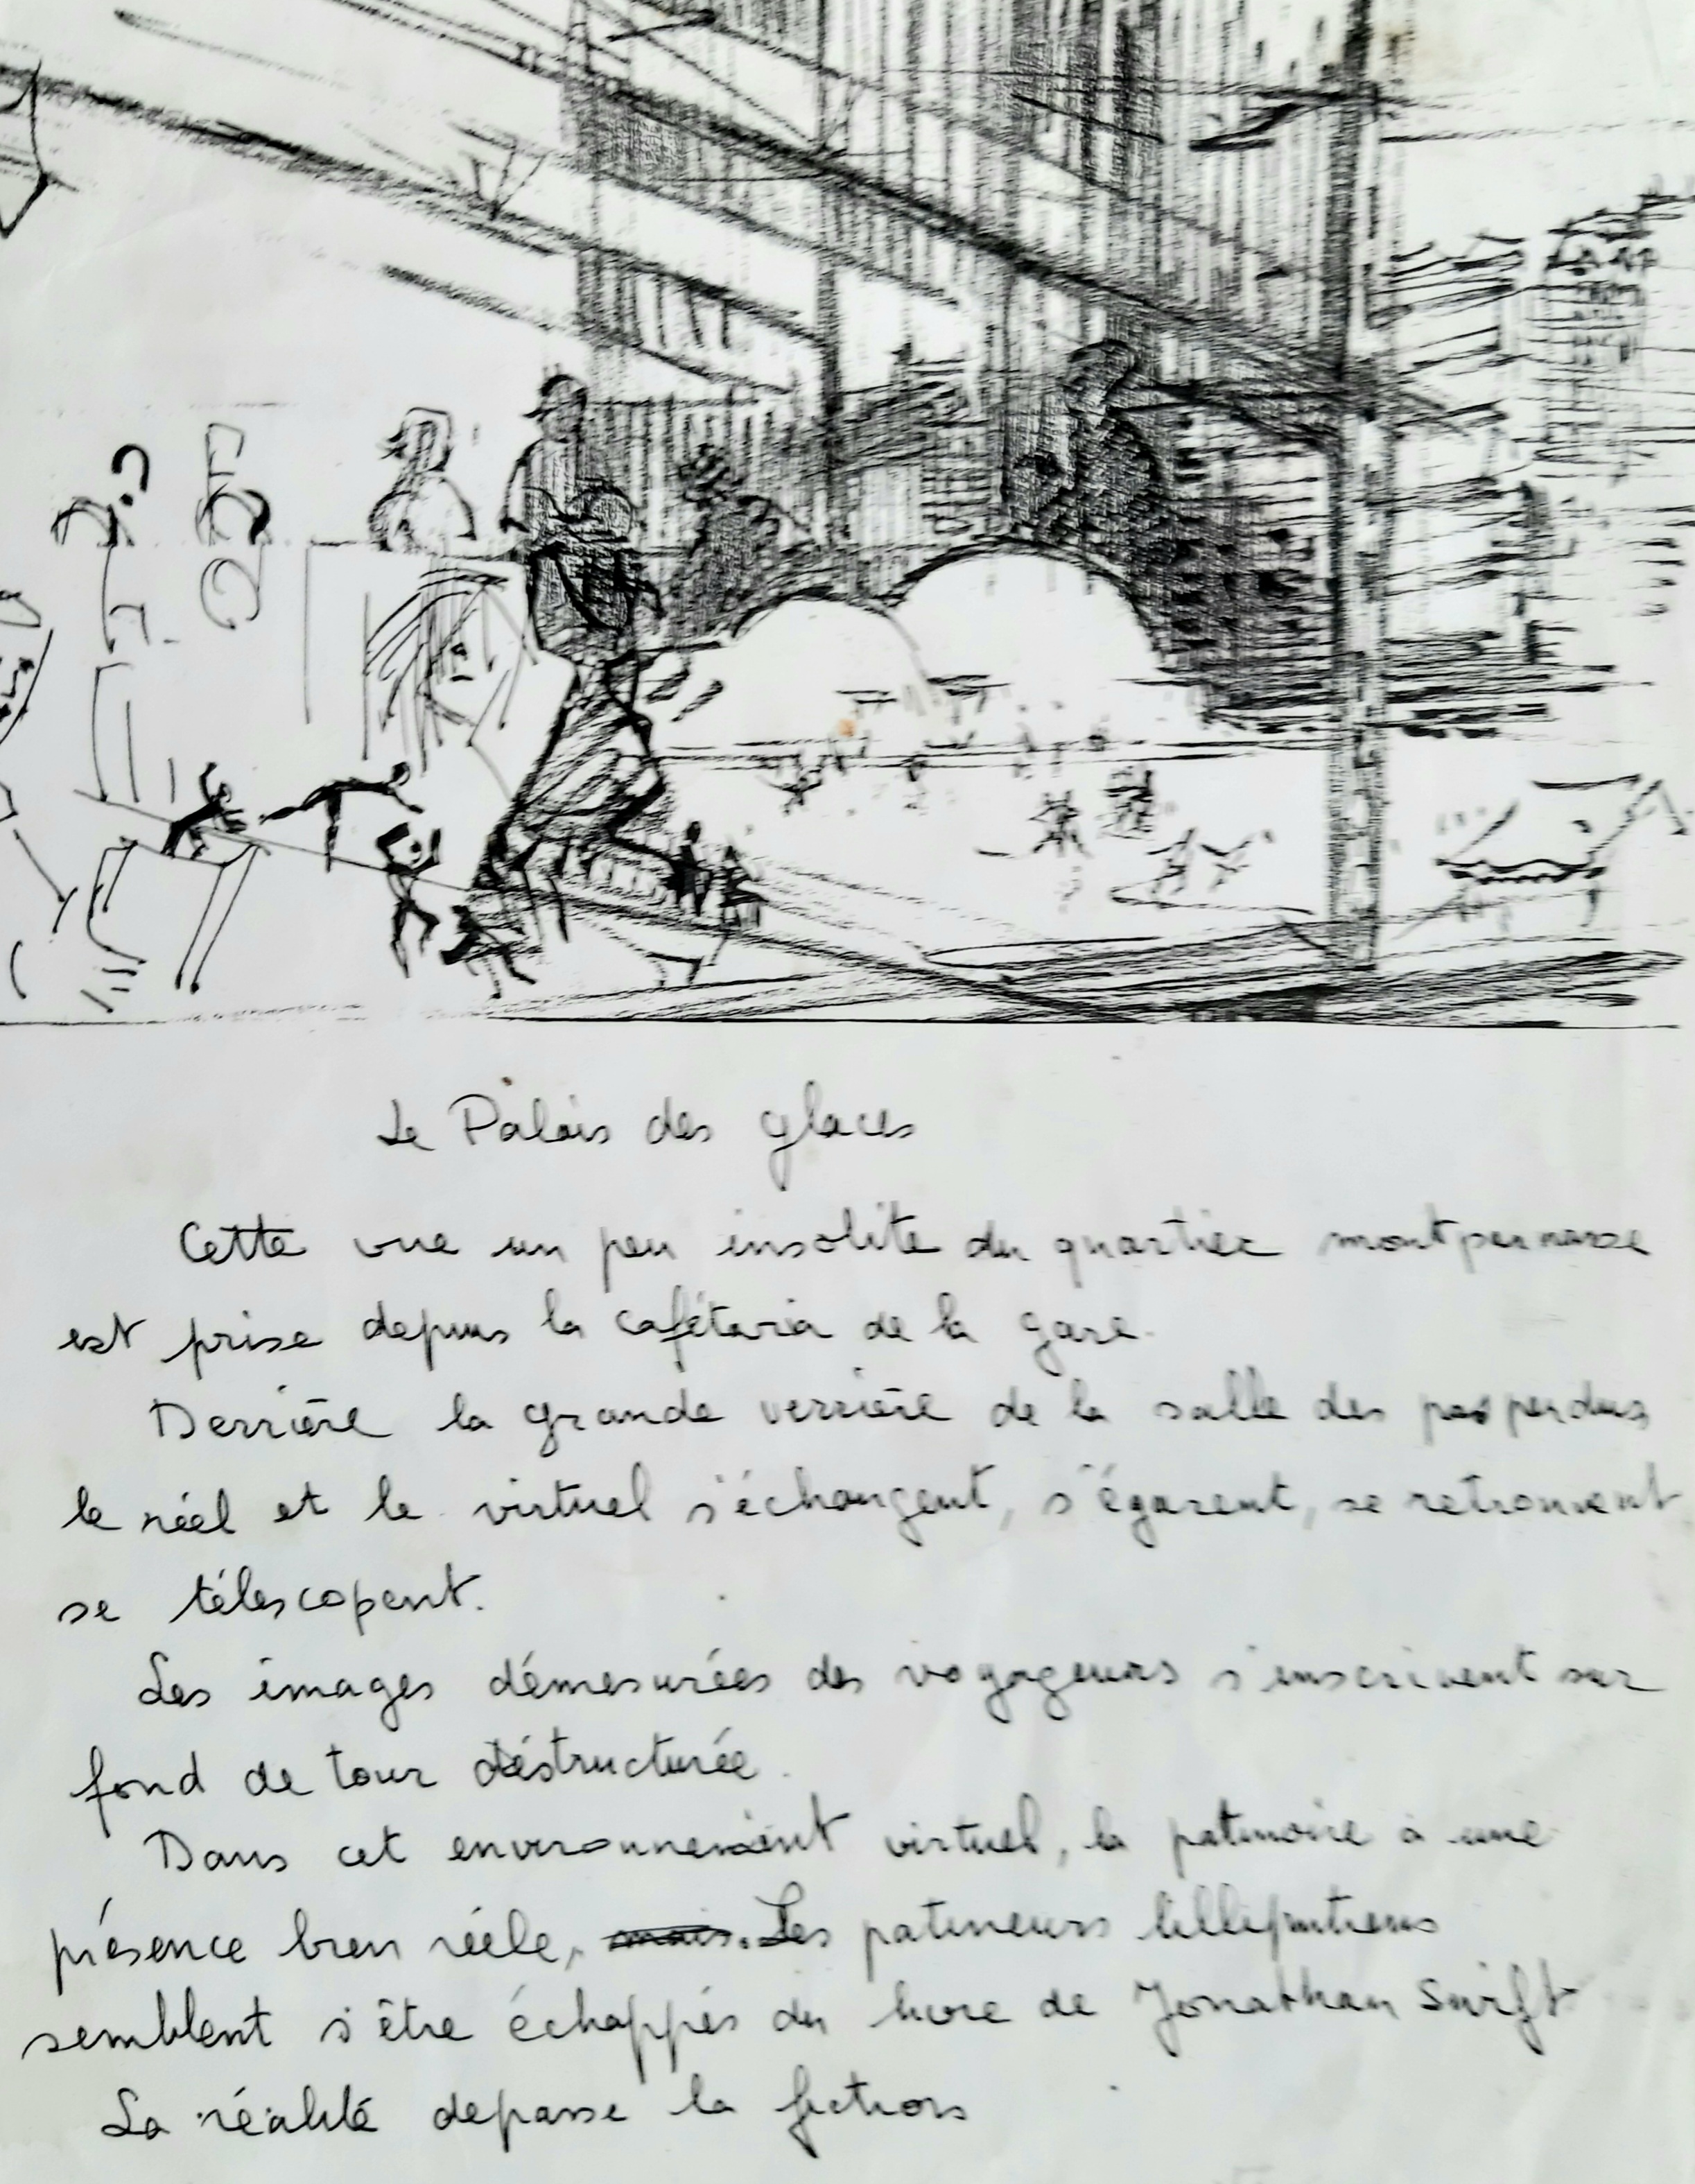 Le Palais des glaces
Cette vue un peu insolite du quartier montparnasse
est prise depuis la cafétaria de la gare.
Derrière la grande verrière de la salle des pas perdus
le réel et le virtuel s'échangent, s'égarent, se retrouvent
se télescopent.
Les images démesurées des voyageurs s'inscrivent sur
fond de tour déstructurée.
Dans cet environnement virtuel, la patinoire à une
présence bien réele, mais. Les patineurs lilliputiens
semblent s'être échappés du livre de Jonathan Swift
La réalité depasse la fiction